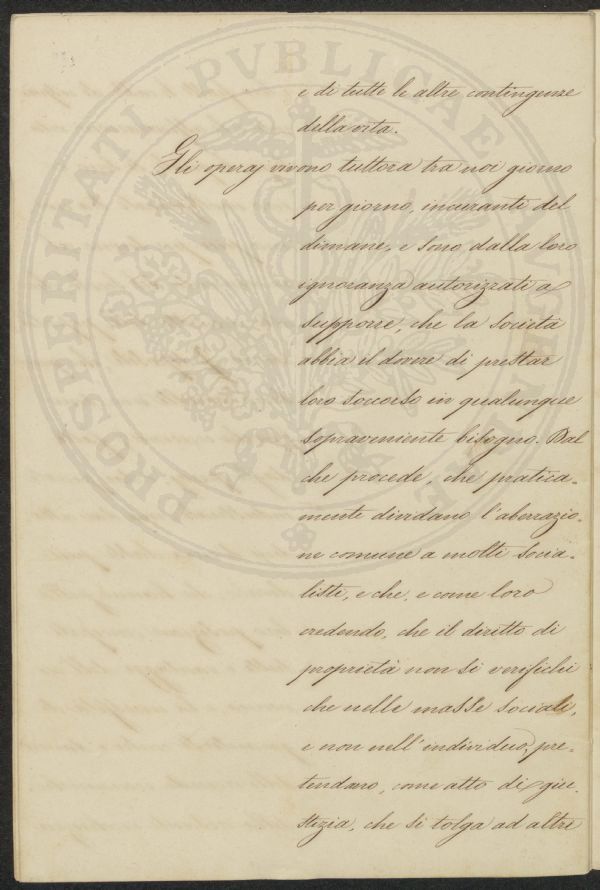 e di tutte le altre contingenze
della vita.
Gli operaj vivono tuttora tra noi giorno
per giorno, incuranti del
dimane, e sono dalla loro
ignoranza autorizzati a
supporre, che la società
abbia il dovere di prestar
loro soccorso in qualunque
sopraveniente bisogno. Dal
che procede, che pratica-
mente dividano l'aberrazio-
ne comune a molti socia-
listi, e che, e come loro
credendo, che il diritto di
proprietà non si verifichi
che nelle masse sociali,
e non nell'individuo, pre-
tendano, come atto di giu-
stizia, che si tolga ad altri
PROSPERITATI PVBLICAE